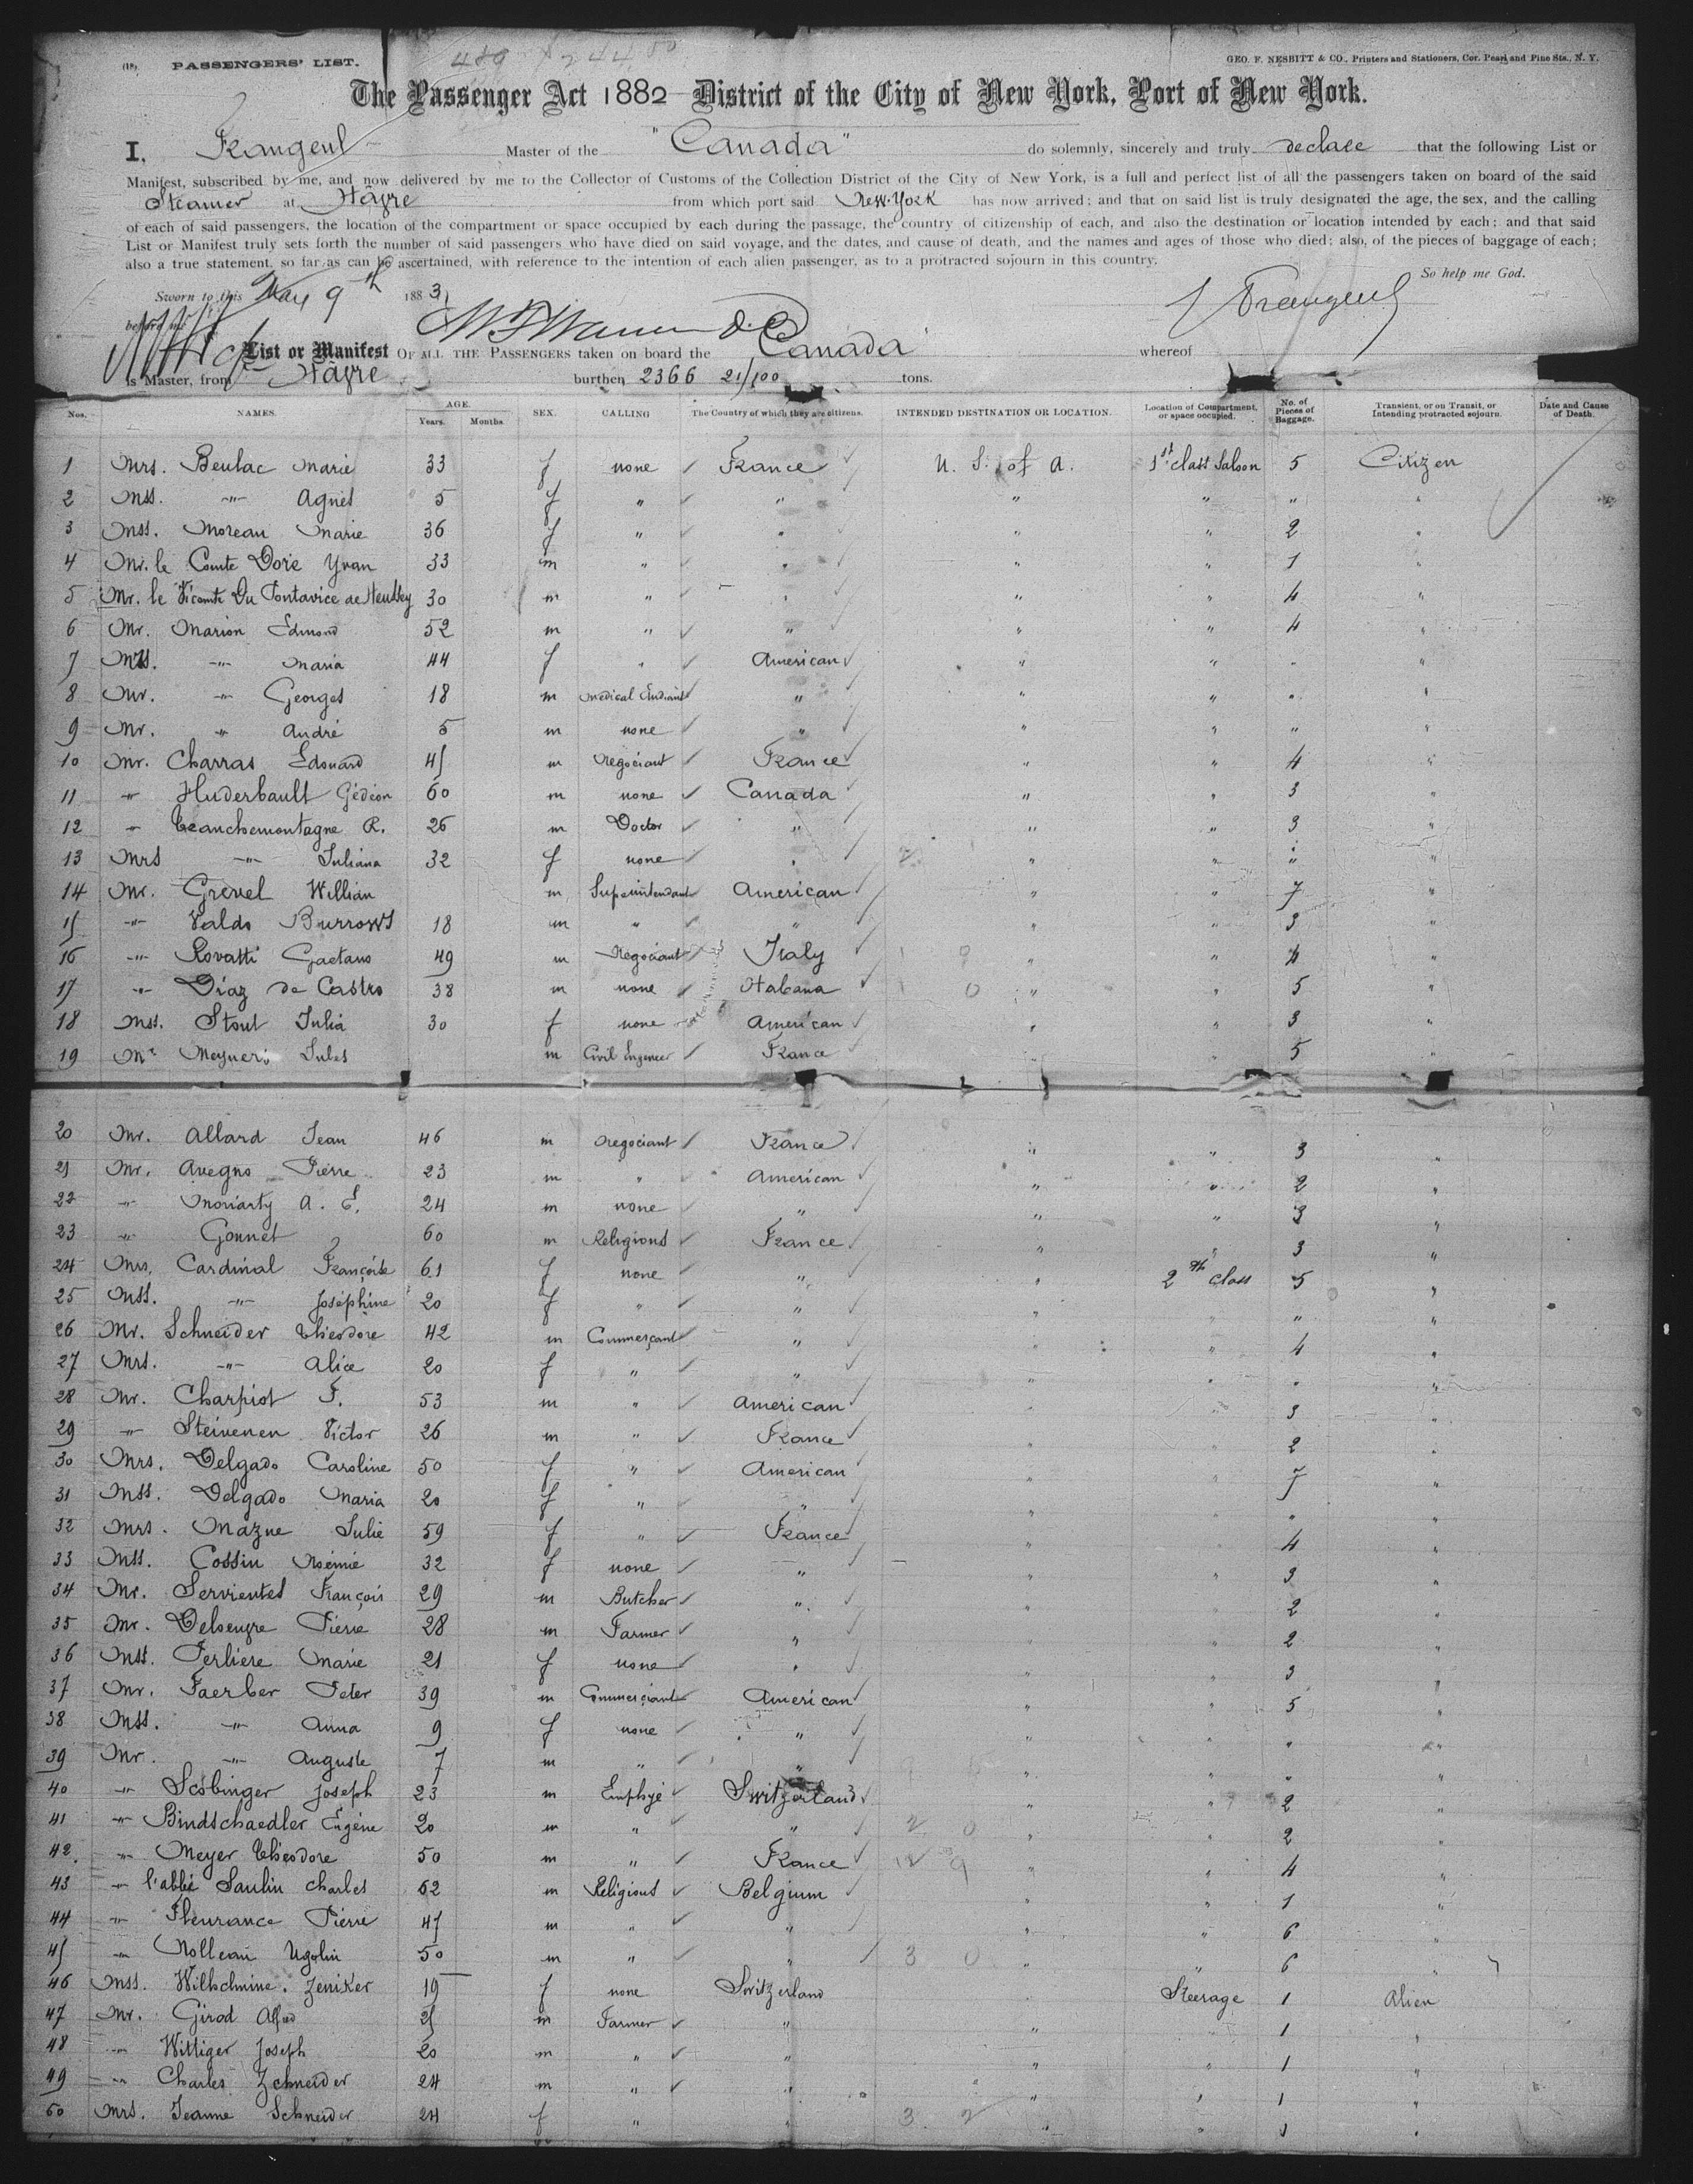 (18) PASSENGERS' LIST. 489 244.50 GEO. F. NESBITT & CO., Printers and Stationers, Cor. Pearl and Pine Sts., N. Y.
The Passenger Act 1882 District of the City of New York, Port of New York.
I, Frangeul Master of the "Canada" do solemnly, sincerely and truly declare that the following List or
Manifest, subscribed by me, and now delivered by me to the Collector of Customs of the Collection District of the City of New York, is a full and perfect list of all the passengers taken on board of the said
Steamer at Hâvre from which port said New-York has now arrived; and that on said list is truly designated the age, the sex, and the calling
of each of said passengers, the location of the compartment or space occupied by each during the passage, the country of citizenship of each, and also the destination or location intended by each; and that said
List or Manifest truly sets forth the number of said passengers who have died on said voyage, and the dates, and cause of death, and the names and ages of those who died; also, of the pieces of baggage of each;
also a true statement, so far as can be ascertained, with reference to the intention of each alien passenger, as to a protracted sojourn in this country.
So help me God.
Sworn to this May 9th 1883, Frangeul
before me
List or Manifest OF ALL THE PASSENGERS taken on board the Canada whereof
is Master, from Hâvre burthen 2366 21/100 tons.
Nos. NAMES. AGE. Years. Months. SEX. CALLING The Country of which they are citizens. INTENDED DESTINATION OR LOCATION. Location of Compartment, or space occupied. No. of Pieces of Baggage. Transient, or on Transit, or Intending protracted sojourn. Date and Cause of Death.
1 Mrs. Beulac Marie 33 f none France U. S. of A. 1st class Saloon 5 Citizen
2 Mss. " Agnes 5 f " " " " " "
3 Mss. Moreau Marie 36 f " " " " 2 "
4 Mr. le Comte Dore Yvan 33 m " " " " 1 "
5 Mr. le Vicomte Du Pontavice de Heussey 30 m " " " " 4 "
6 Mr. Marion Edmond 52 m " " " " 4 "
7 Mrs. " Maria 44 f " American " " " "
8 Mr. " Georges 18 m medical Student " " " " "
9 Mr. " André 5 m none " " " " "
10 Mr. Charras Edouard 45 m Négociant France " " 4 "
11 " Huderbault Gédéon 60 m none Canada " " 3 "
12 " R. 26 m Doctor " " " 3 "
13 Mrs " Juliana 32 f none " " " " "
14 Mr. Grevel William m Superintendant American " " 7 "
15 " Valdo Burrows 18 m " " " " 3 "
16 " Rovatti Gaetano 49 m Négociant Italy " " 4 "
17 " Diaz de Castro 38 m none Habana " " 5 "
18 Mss. Stout Julia 30 f none American " " 3 "
19 Mr Jules m Civil Engineer France " " 5 "
20 Mr. Allard Jean 46 m négociant France " " 3 "
21 Mr. Avegno Pierre 23 m " American " " 2 "
22 " Moriarty A. E. 24 m none " " " 3 "
23 " Gonnet 60 m Religious France " " 3 "
24 Mrs. Cardinal Françoise 61 f none " " 2th class 5 "
25 Mss. " Joséphine 20 f " " " " " "
26 Mr. Schneider Théodore 42 m Commerçant " " " 4 "
27 Mrs. " Alice 20 f " " " " " "
28 Mr. Charpiot F. 53 m " American " " 3 "
29 " Steivenen Victor 26 m " France " " 2 "
30 Mrs. Delgado Caroline 50 f " American " " 7 "
31 Mss. Delgado Maria 20 f " " " " " "
32 Mrs. Mazue Julie 59 f " France " " 4 "
33 Mss. Cossin Noémie 32 f none " " " 3 "
34 Mr. Servientes François 29 m Butcher " " " 2 "
35 Mr. Pierre 28 m Farmer " " " 2 "
36 Mss. Perliere Marie 21 f none " " " 3 "
37 Mr. Faerber Peter 39 m Commerçiant American " " 5 "
38 Mss. " Anna 9 f none " " " " "
39 Mr. " Auguste 7 m " " " " " "
40 " Scobinger Joseph 23 m Employé Switzerland " " 2 "
41 " Bindschaedler Eugène 20 m " " " " 2 "
42. " Meyer Théodore 50 m " France " " 4 "
43 " l'abbé Saulin Charles 62 m Religious Belgium " " 1 "
44 " Fleurance Pierre 47 m " " " " 6 "
45 " Nolleau Ugolin 50 m " " " " 6 "
46 Mss. Wilhelmine Zeniker 19 f none Switzerland " Steerage 1 Alien
47 Mr. Girod Alfred 25 m Farmer " " " 1 "
48 " Wittiger Joseph 20 m " " " " 1 "
49 " Charles Zchneider 24 m " " " " 1 "
50 Mrs. Jeanne Schneider 24 f " " " " 1 "